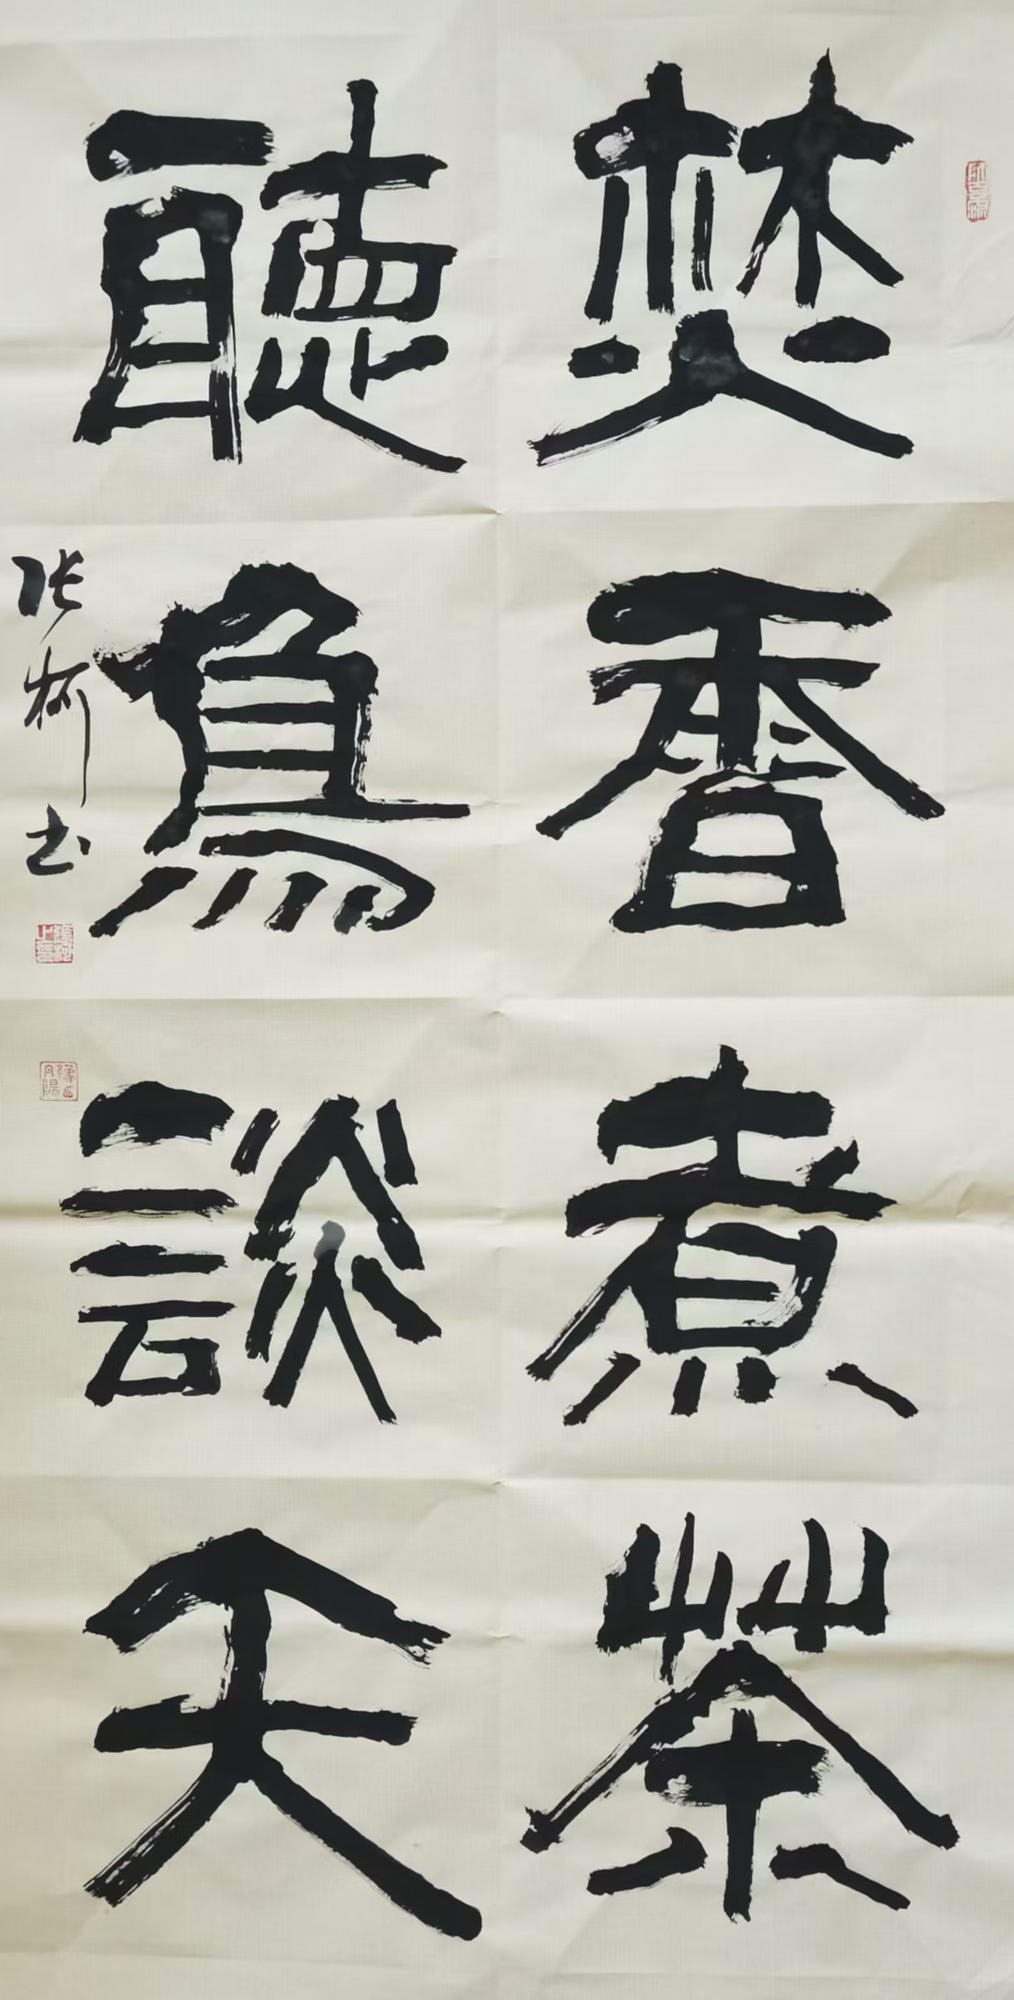 焚香煮茶
聽鳥談天
张柯书